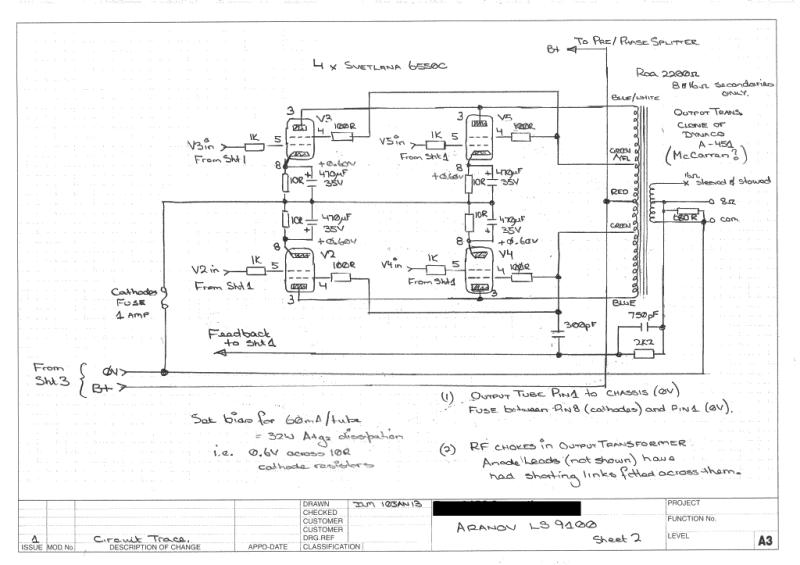 To Pre/Phase Splitter
B+
4 x Svetlana 6550C
Raa 2200Ω
8 & 16Ω secondaries
only.
Blue/White
Output Trans.
Clone of
Dynaco
A-451
(McCarran?)
3
V3
4
100R
1K
5
V3 in
From Sht 1
8
+0.60V
10R
470µF
35V
3
V5
4
100R
1K
5
V5 in
From Sht 1
8
+0.60V
10R
470µF
35V
Green
/Yel
Red
16Ω
x sleeved & stowed
8Ω
680R
com
10R
470µF
35V
+0.60V
8
V2
100R
1K
5
4
V2 in
From Sht 1
3
10R
470µF
35V
+0.60V
8
V4
100R
1K
5
4
V4 in
From Sht 1
3
Green
Blue
Cathodes
Fuse
1 Amp
300pF
750pF
2K2
Feedback
to Sht 1
From
Sht 3
0V
B+
Set bias for 60mA/tube
= 32W A+g2 dissipation
i.e. 0.6V across 10R
cathode resistors
(1) Output Tube Pin 1 to chassis (0V)
Fuse between Pin 8 (cathodes) and Pin 1 (0V).
(2) RF chokes in Output Transformer
Anode Leads (not shown) have
had shorting links fitted across them.
DRAWN
JLM 10JAN13
CHECKED
CUSTOMER
CUSTOMER
DRG.REF
CLASSIFICATION
Aranov LS 9100
Sheet 2
PROJECT
FUNCTION No.
LEVEL
A3
1
Circuit Trace.
ISSUE
MOD No
DESCRIPTION OF CHANGE
APPD-DATE